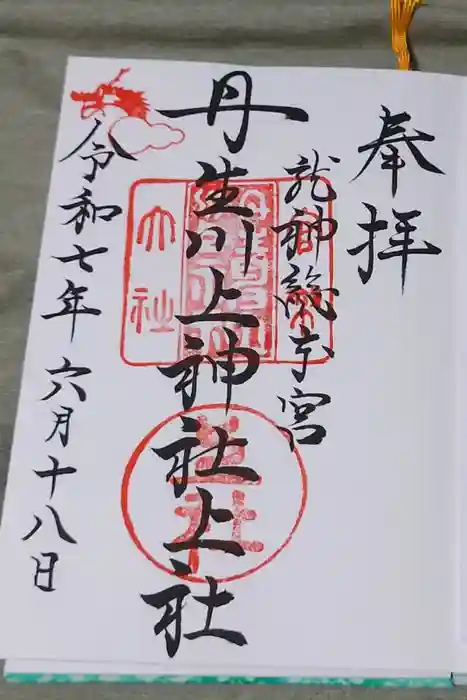 奉拝
龍神総本宮
丹生川上神社上社
令和七年六月十八日
大社
上社